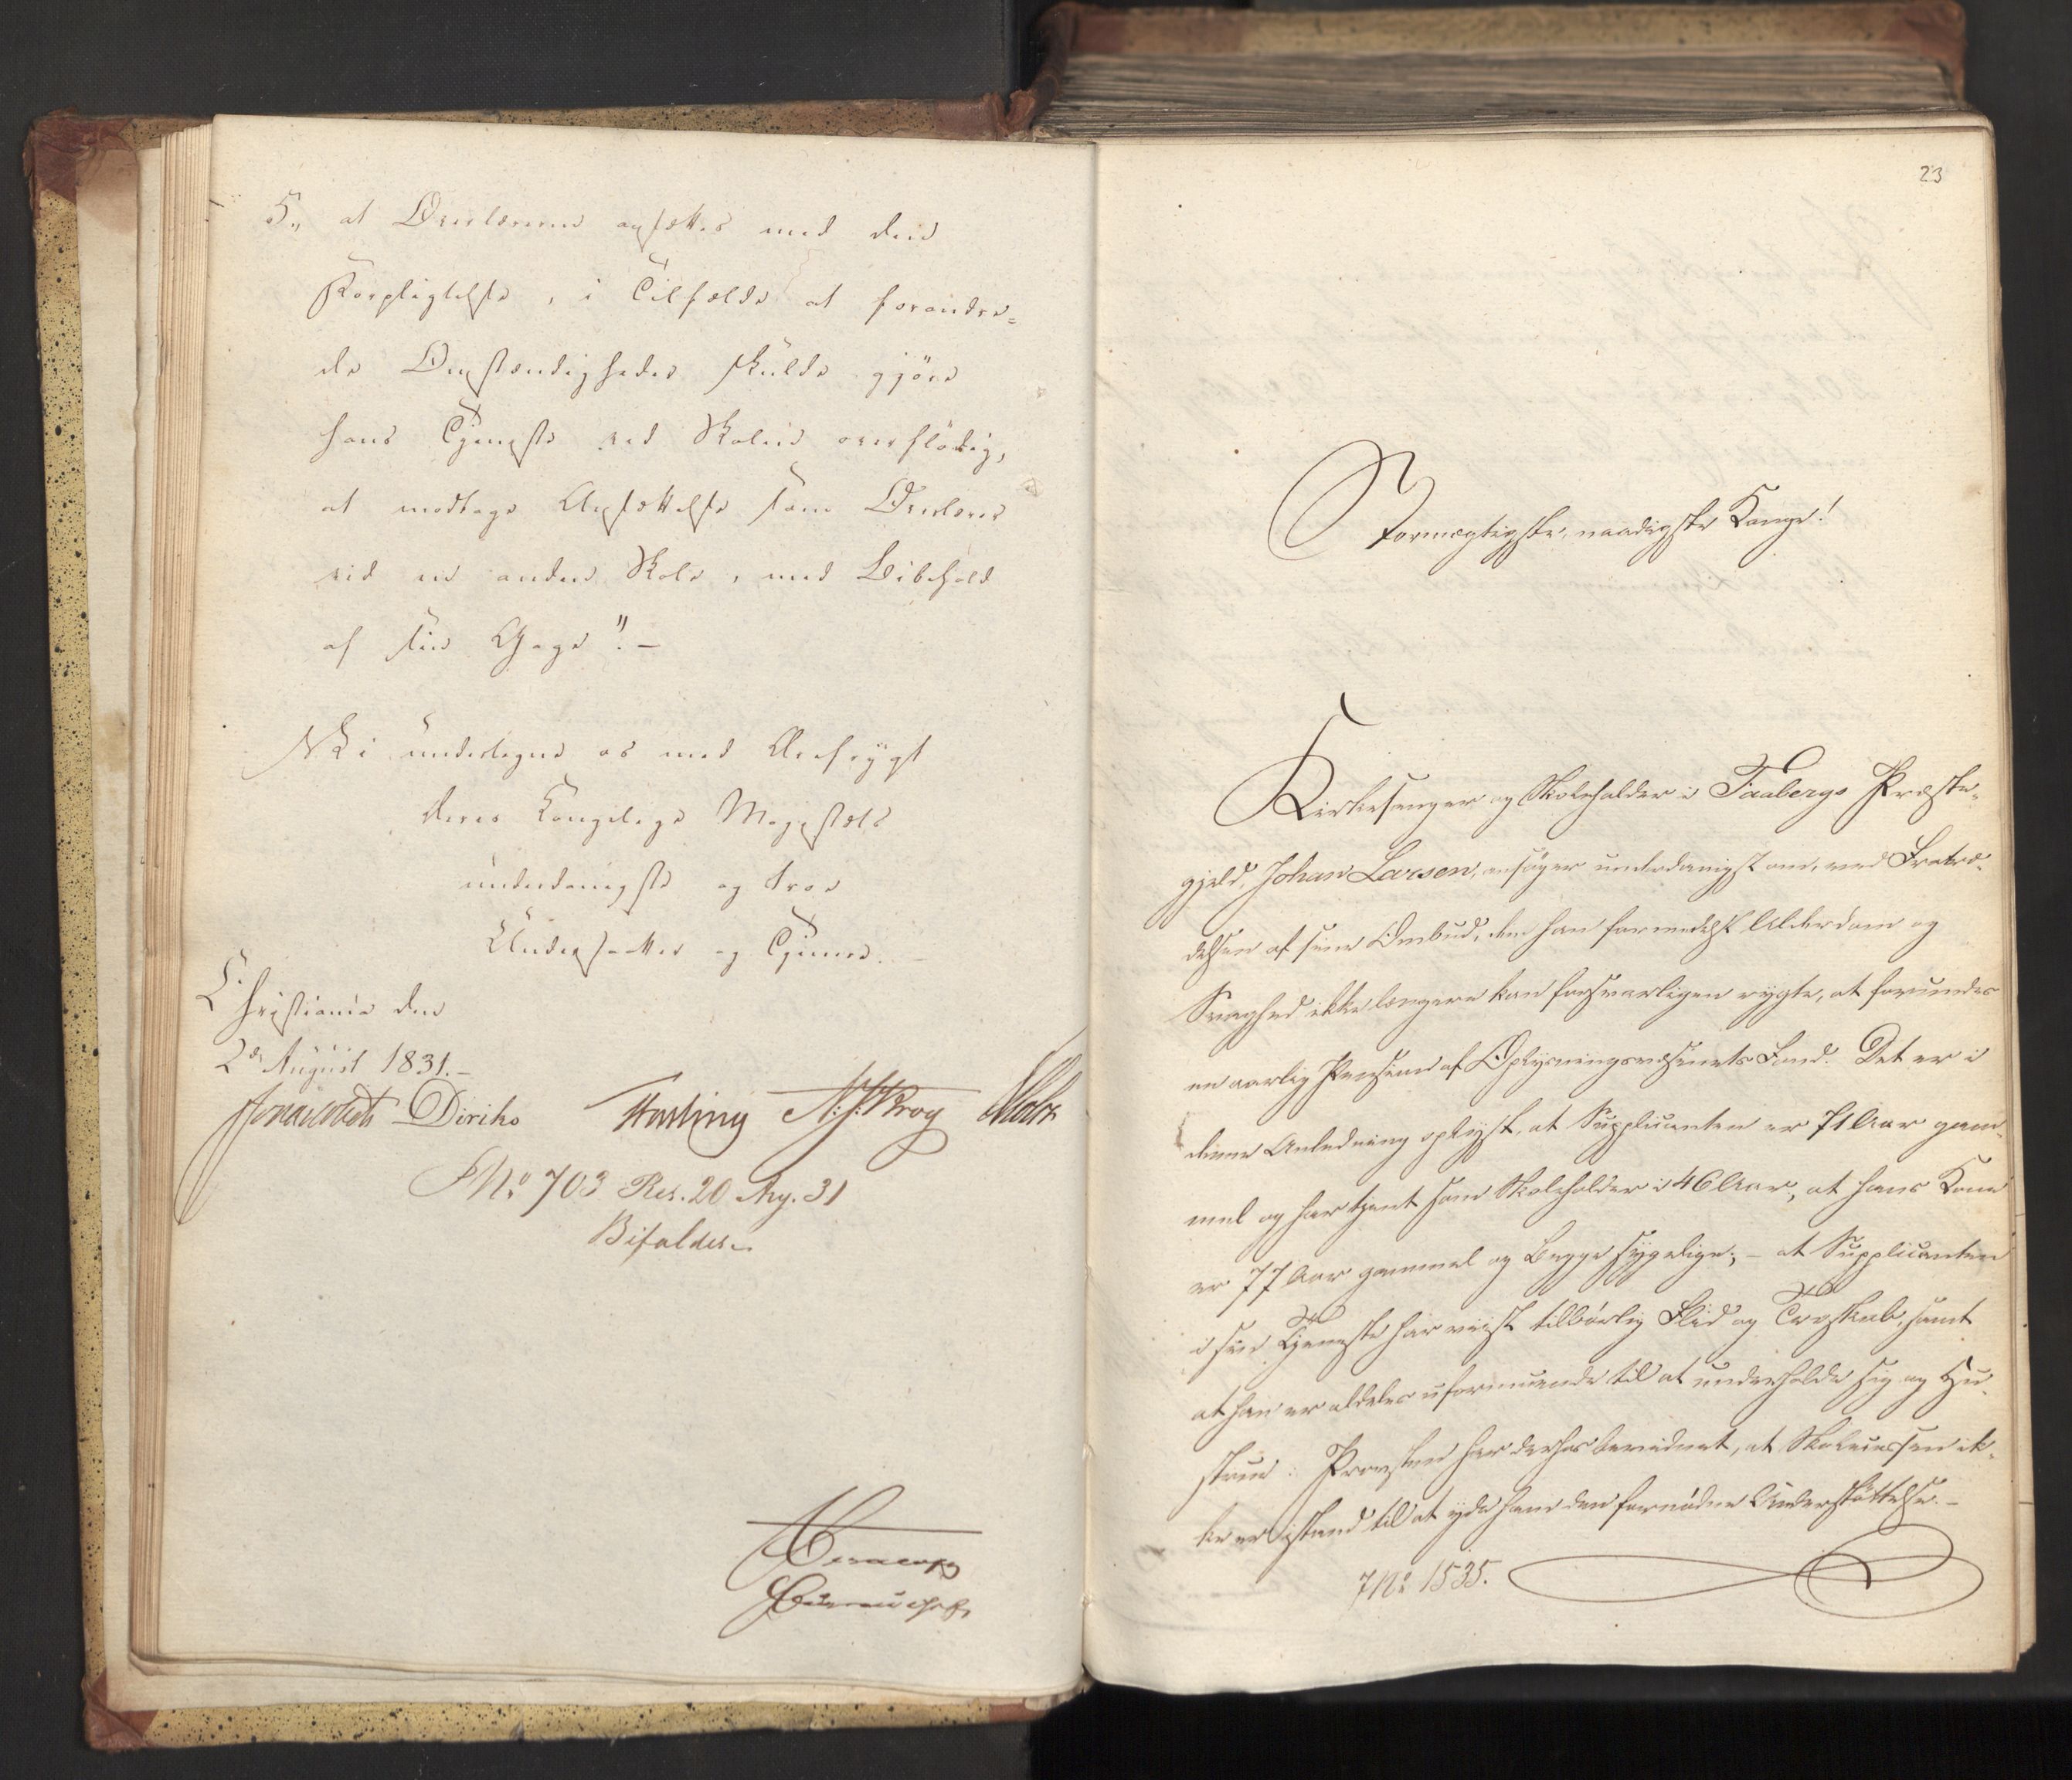 5,, at Overlæreren ansættes med den
Forpligtelse, i Tilfælde at forandre=
de Omstændigheder skulde gjöre
hans Tjeneste ved Skolen overflödig,
at modtage Ansættelse som Overlærer
ved en anden Skole, med Bibehold
af sin Gage". –
Vi undertegne os med Ærefrygt
Deres Kongelige Majestæts
underdanigste og troe
Undersaatter og Tjenere. –
Christiania den
2den August 1831. –
Diriks N. J. Krog
No 703 Res. 20 Aug. 31
Bifaldes.
23
Stormægtigste, naadigste Konge!
Kirkesanger og Skoleholder i Faabergs Præste-
gjeld, Johan Larsen, ansøger underdanigst om, ved Fratræ-
delsen af sine Ombud, dem han formedelst Alderdom og
Svaghed ikke længere kan forsvarligen rygte, at forundes
en aarlig Pension af Oplysningsvæsenets Fond. Det er i
denne Anledning oplyst, at Supplicanten er 71 Aar gam-
mel og har tjent som Skoleholder i 46 Aar, at hans Kone
er 77 Aar gammel og Begge sygelige; – at Supplicanten
i sin Tjeneste har viist tilbørlig Flid og Troskab, samt
at han er aldeles uformuende til at underholde sig og Hu-
strue. Provsten har derhos bevidnet, at Skolecassen ik-
ke er istand til at yde ham den fornødne Understøttelse. –
No 1535.